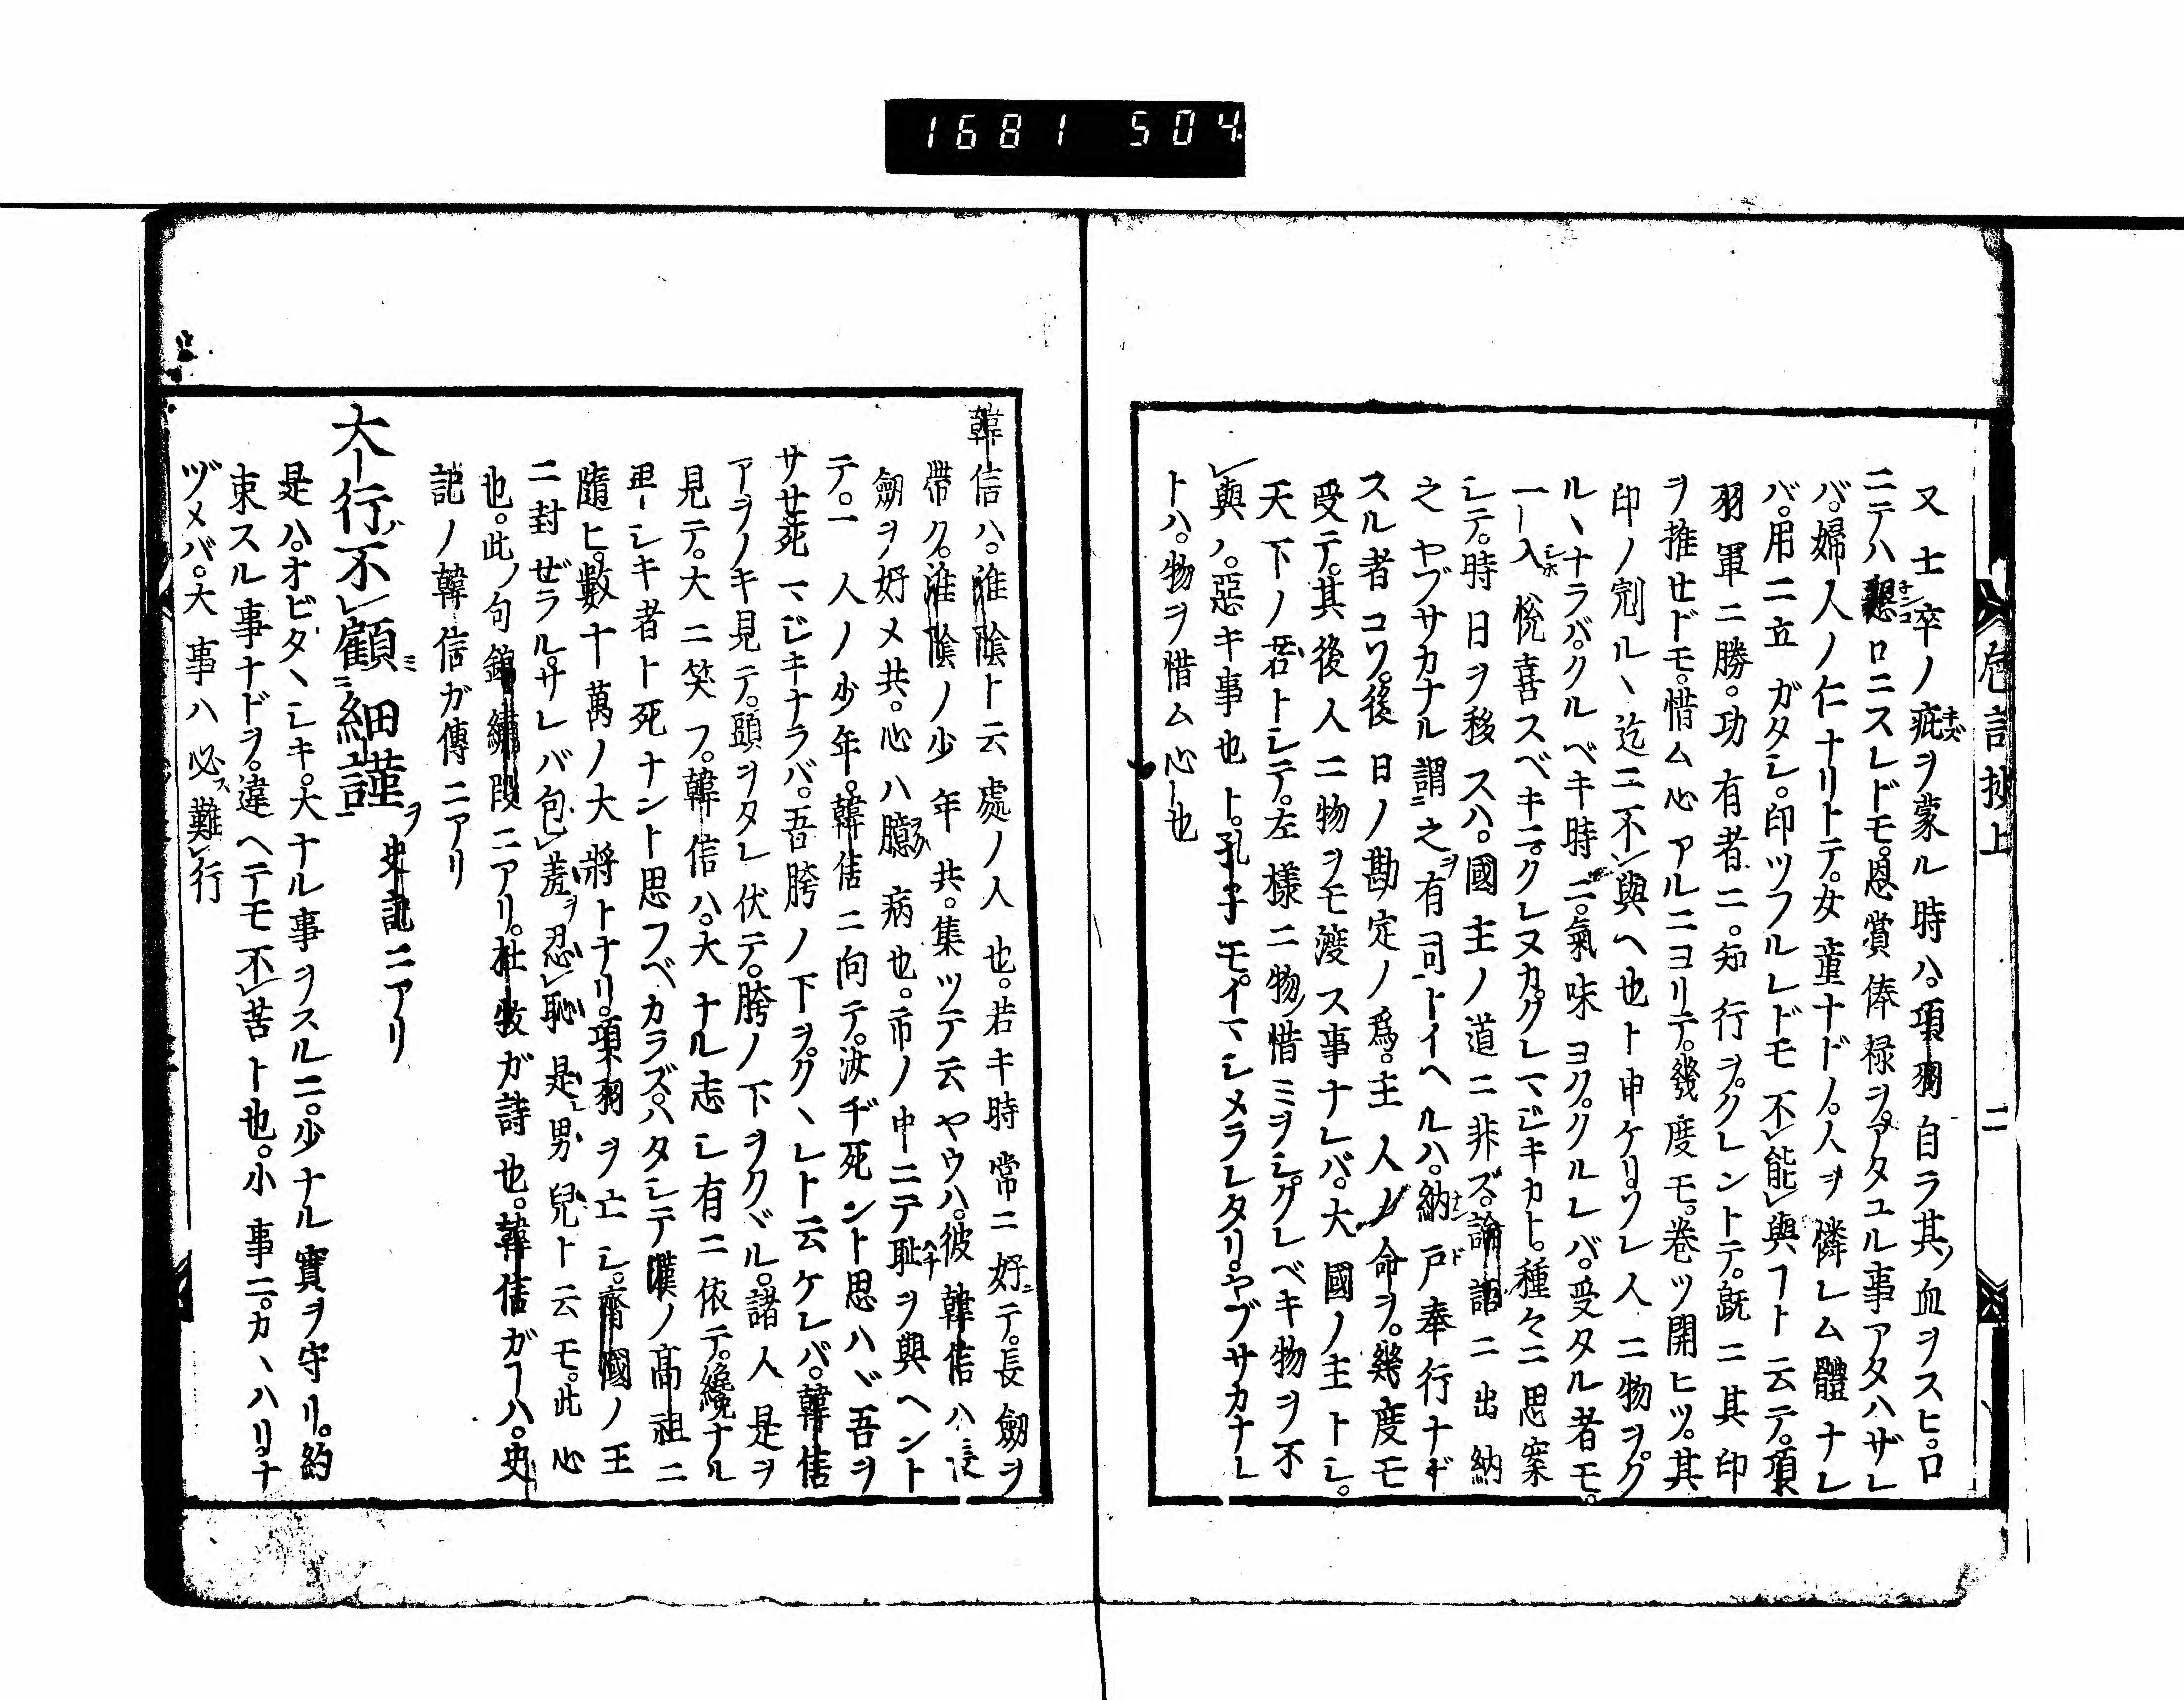 1681 504.
巵言抄上
二
又士卒ノ疵ヲ蒙ル時ハ。項羽自ラ其ノ血ヲスヒ。口
ニテハ懇ロニスレドモ。恩賞俸禄ヲ。アタユル事アタハザレ
バ。婦人ノ仁ナリトテ。女童ナドノ。人ヲ憐レム體ナレ
バ。用ニ立ガタシ。印ツフルレドモ不レ能レ與フト云テ。項
羽軍ニ勝。功有者ニ。知行ヲ。クレントテ。既ニ其印
ヲ推セドモ。惜ム心アルニヨリテ。幾度モ。卷ツ開ヒツ。其
印ノ刓ル丶迄ニ不レ與ヘ也ト申ケリ。ソレ人ニ物ヲ。ク
ル丶ナラバ。クルベキ時ニ。氣味ヨク。クルレバ。受タル者モ。
一入悅喜スベキニ。クレヌカ。クレマジキカト。種々ニ思案
シテ。時日ヲ移スハ。國主ノ道ニ非ズ。論語ニ出納
之ヤブサカナル謂之ヲ有司トイヘルハ。納戸奉行ナド
スル者コソ。後日ノ勘定ノ爲。主人ノ命ヲ。幾度モ
受テ。其後人ニ物ヲモ渡ス事ナレバ。大國ノ主トシ。
天下ノ君トシテ。左樣ニ物惜ミヲシ。クレベキ物ヲ不
レ與ハ。惡キ事也ト。孔子モ。イマシメラレタリ。ヤブサカナレ
トハ。物ヲ惜ム心也
韓信ハ。淮陰ト云處ノ人也。若キ時常ニ好テ。長劔ヲ
帶ク。淮陰ノ少年共。集ツテ云ヤウハ。彼韓信ハ長
劔ヲ好メ共。心ハ臆病也。市ノ中ニテ耻ヲ與ヘント
テ。一人ノ少年。韓信ニ向テ。汝ヂ死ント思ハヾ吾ヲ
サセ死マジキナラバ。吾胯ノ下ヲ。ク丶レト云ケレバ。韓信
アヲノキ見テ。頭ヲタレ伏テ。胯ノ下ヲクヾル。諸人是ヲ
見テ。大ニ笑フ。韓信ハ。大ナル志シ有ニ依テ。纔ナル
卑シキ者ト死ナント思フベカラズ。ハタシテ漢ノ高祖ニ
隨ヒ。數十萬ノ大將トナリ。項羽ヲ亡シ。齊國ノ王
ニ封ゼラル。サレバ包レ羞ヲ忍レ恥是レ男兒ト云モ。此心
也。此ノ句錦繡段ニアリ。杜牧ガ詩也。韓信ガヿハ。史
記ノ韓信ガ傳ニアリ
大行ハ不レ顧ミ二細謹ヲ一 史記ニアリ
是ハ。オビタ丶シキ。大ナル事ヲスルニ。少ナル實ヲ守リ。約
束スル事ナドヲ。違ヘテモ不レ苦ト也。小事ニ。カ丶ハリ。ナ
ヅメバ。大事ハ必ス難レ行